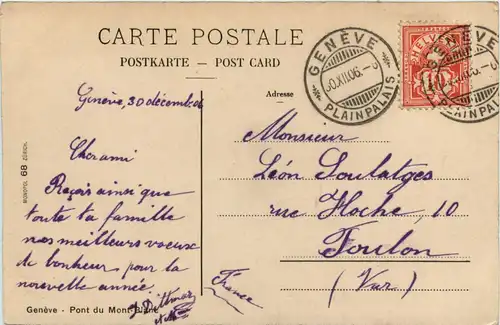 CARTE POSTALE
POSTKARTE — POST CARD
Adresse
GENÈVE
30.XII.06.
PLAINPALAIS
HELVETIA
10
GENÈVE
PLAINPALAIS
Genève, 30 décembre
Cher ami
Reçois ainsi que
toute ta famille
nos meilleurs vœux
de bonheur pour la
nouvelle année.
J. Dittmar
Monsieur
Léon Soulatges
rue Hoche, 10
Toulon
(Var)
France
MONOPOL 68 ZÜRICH.
Genève - Pont du Mont-Blanc